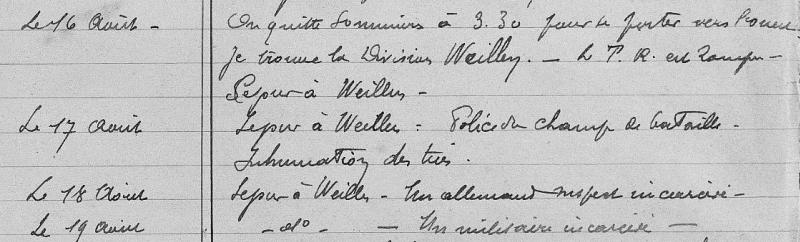 Le 16 Août - On quitte Sommiers à 3.30 pour se porter vers
Je trouve la Division Weiller. - Le T. R. est
Séjour à Weiller -
Le 17 Août Séjour à Weiller - Police du champ de bataille -
Inhumation des tués.
Le 18 Août Séjour à Weiller - Un allemand suspect incarcéré -
Le 19 Août - do - - Un militaire incarcéré -